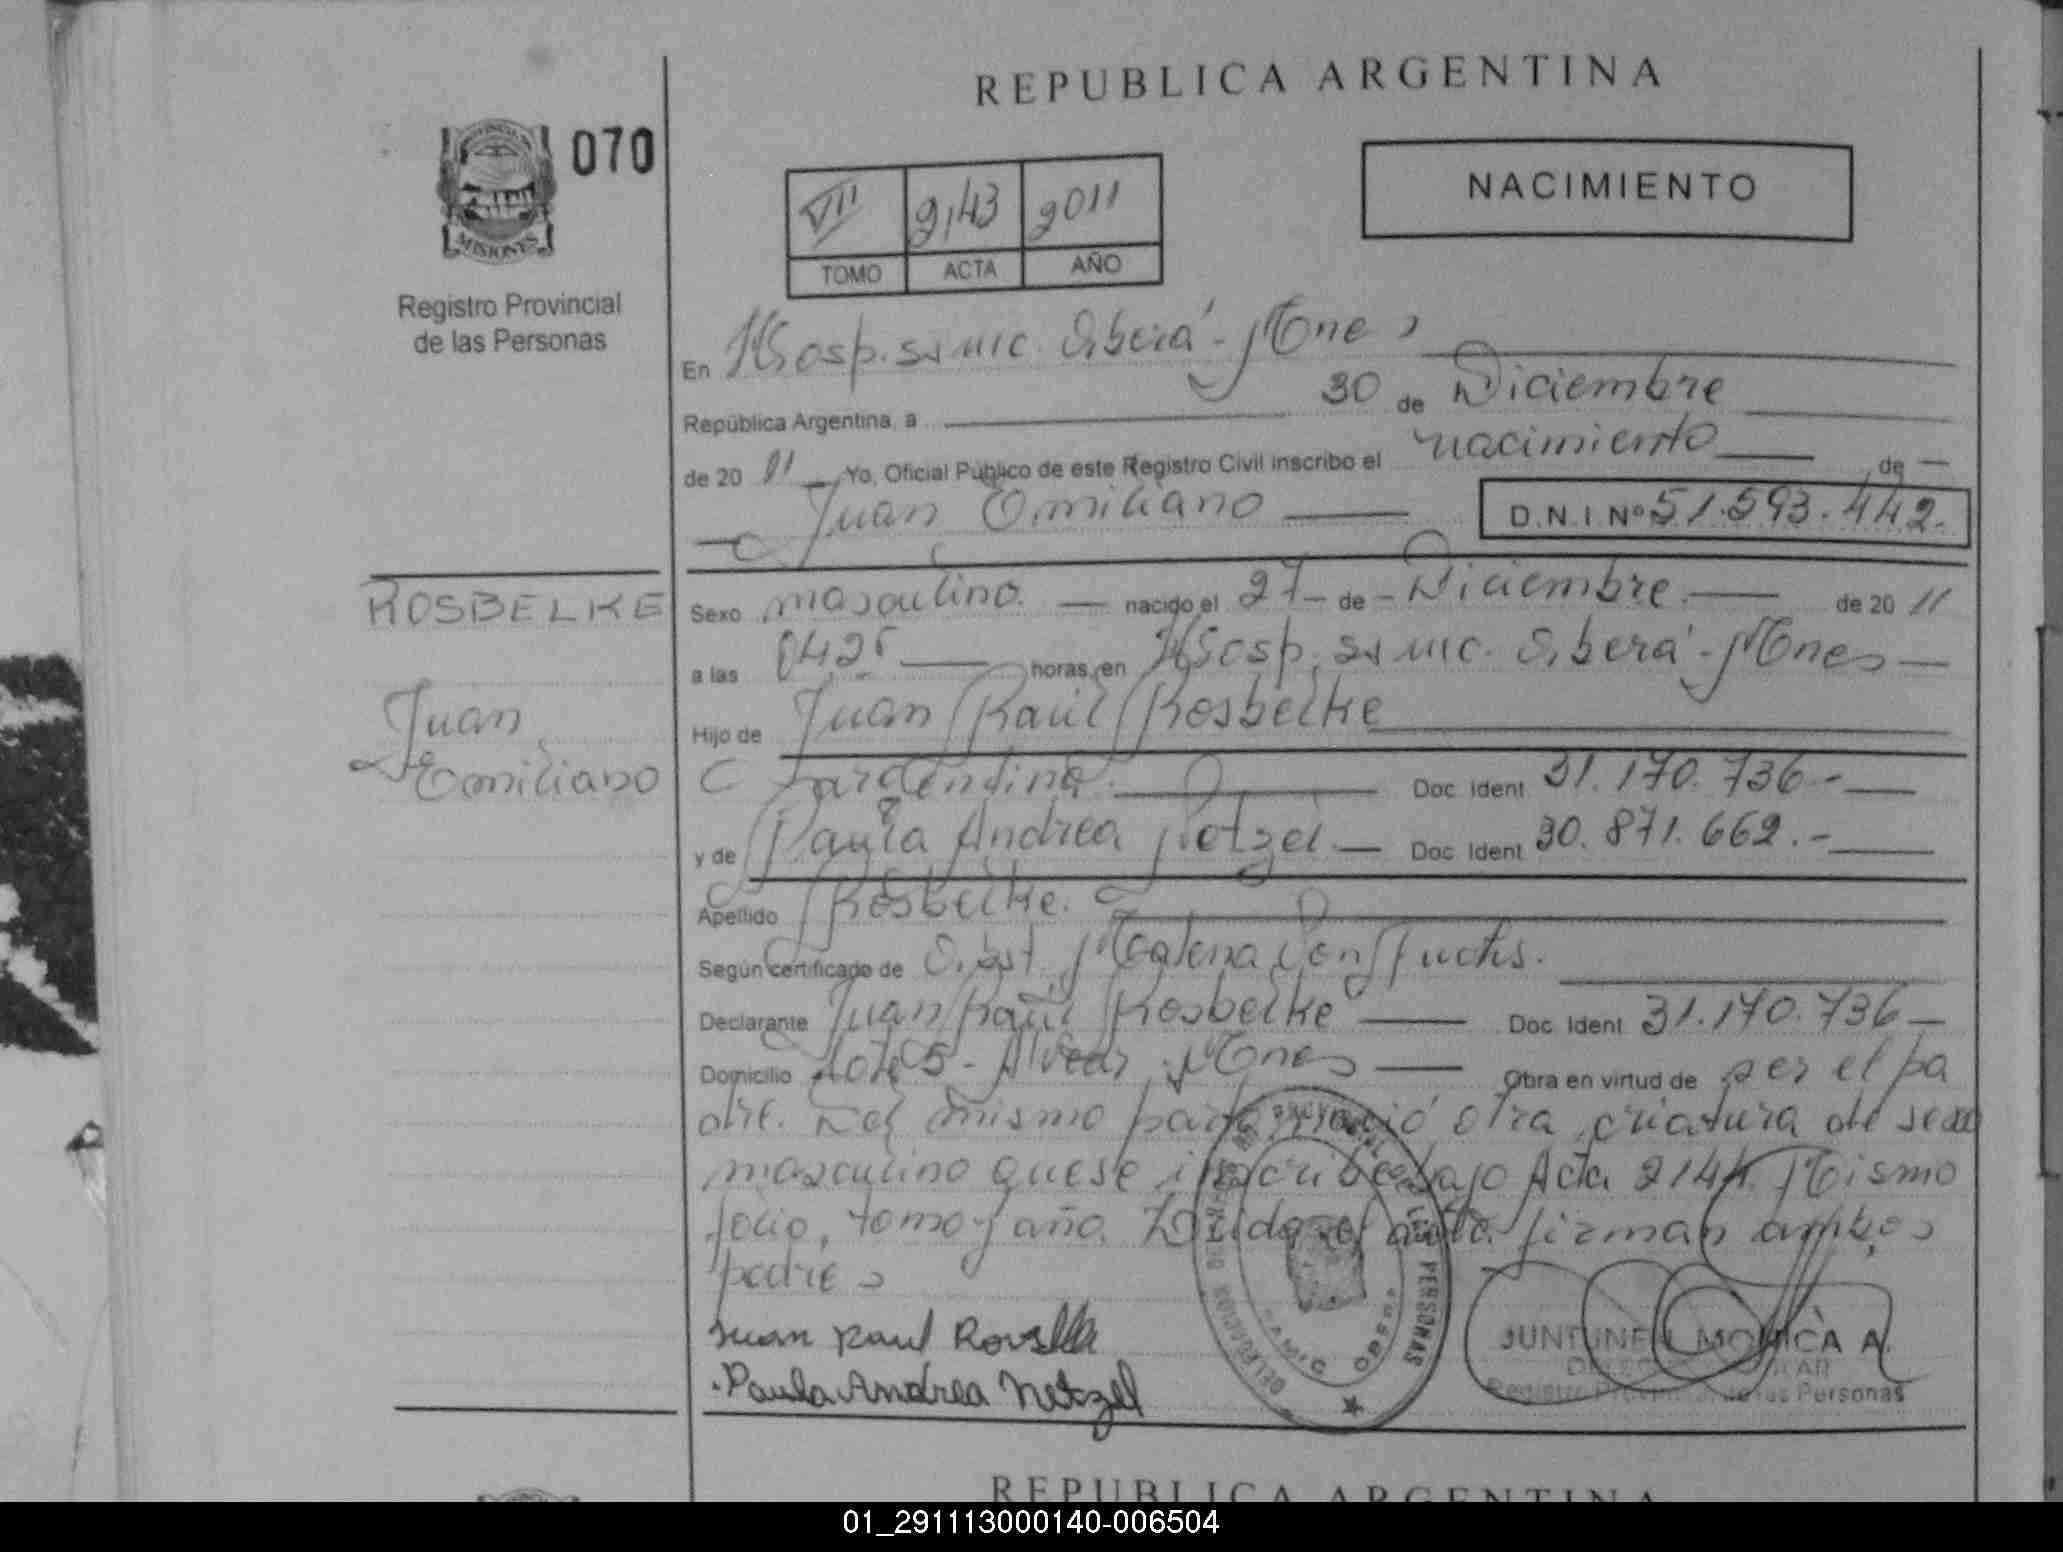 REPUBLICA ARGENTINA
070
NACIMIENTO
VII 2143 2011
TOMO ACTA AÑO
MISIONES
Registro Provincial
de las Personas
En Hosp. SSMIC. Oberá - Mnes
República Argentina, a 30 de Diciembre
de 20 11 Yo, Oficial Público de este Registro Civil inscribo el nacimiento de
Juan Emiliano D.N.I Nº 51.593.442.
ROSBELKE
Sexo masculino. nacido el 27 de Diciembre. de 20 11
a las 0425 horas, en Hosp. SSMIC. Oberá - Mnes
Juan
Emiliano
Hijo de Juan Raúl Rosbelke
Argentina. Doc. Ident 31.170.736.-
y de Paula Andrea Netzel Doc. Ident 30.871.662.-
Apellido Rosbelke.
Según certificado de Obst. Malena Von Fuchs.
Declarante Juan Raúl Rosbelke Doc. Ident 31.170.736
Domicilio Lote 5 - Alvear Mnes Obra en virtud de ser el pa
dre. Del mismo parto nació otra criatura de sexo
masculino que se inscribe bajo Acta 2144. Mismo
folio, tomo y año. Leída el acta firman ambos
padres
Juan Raul
Paula Andrea Netzel
JUNTUNEN MONICA A.
Registro Provincial de las Personas
REPUBLICA ARGENTINA
01_291113000140-006504